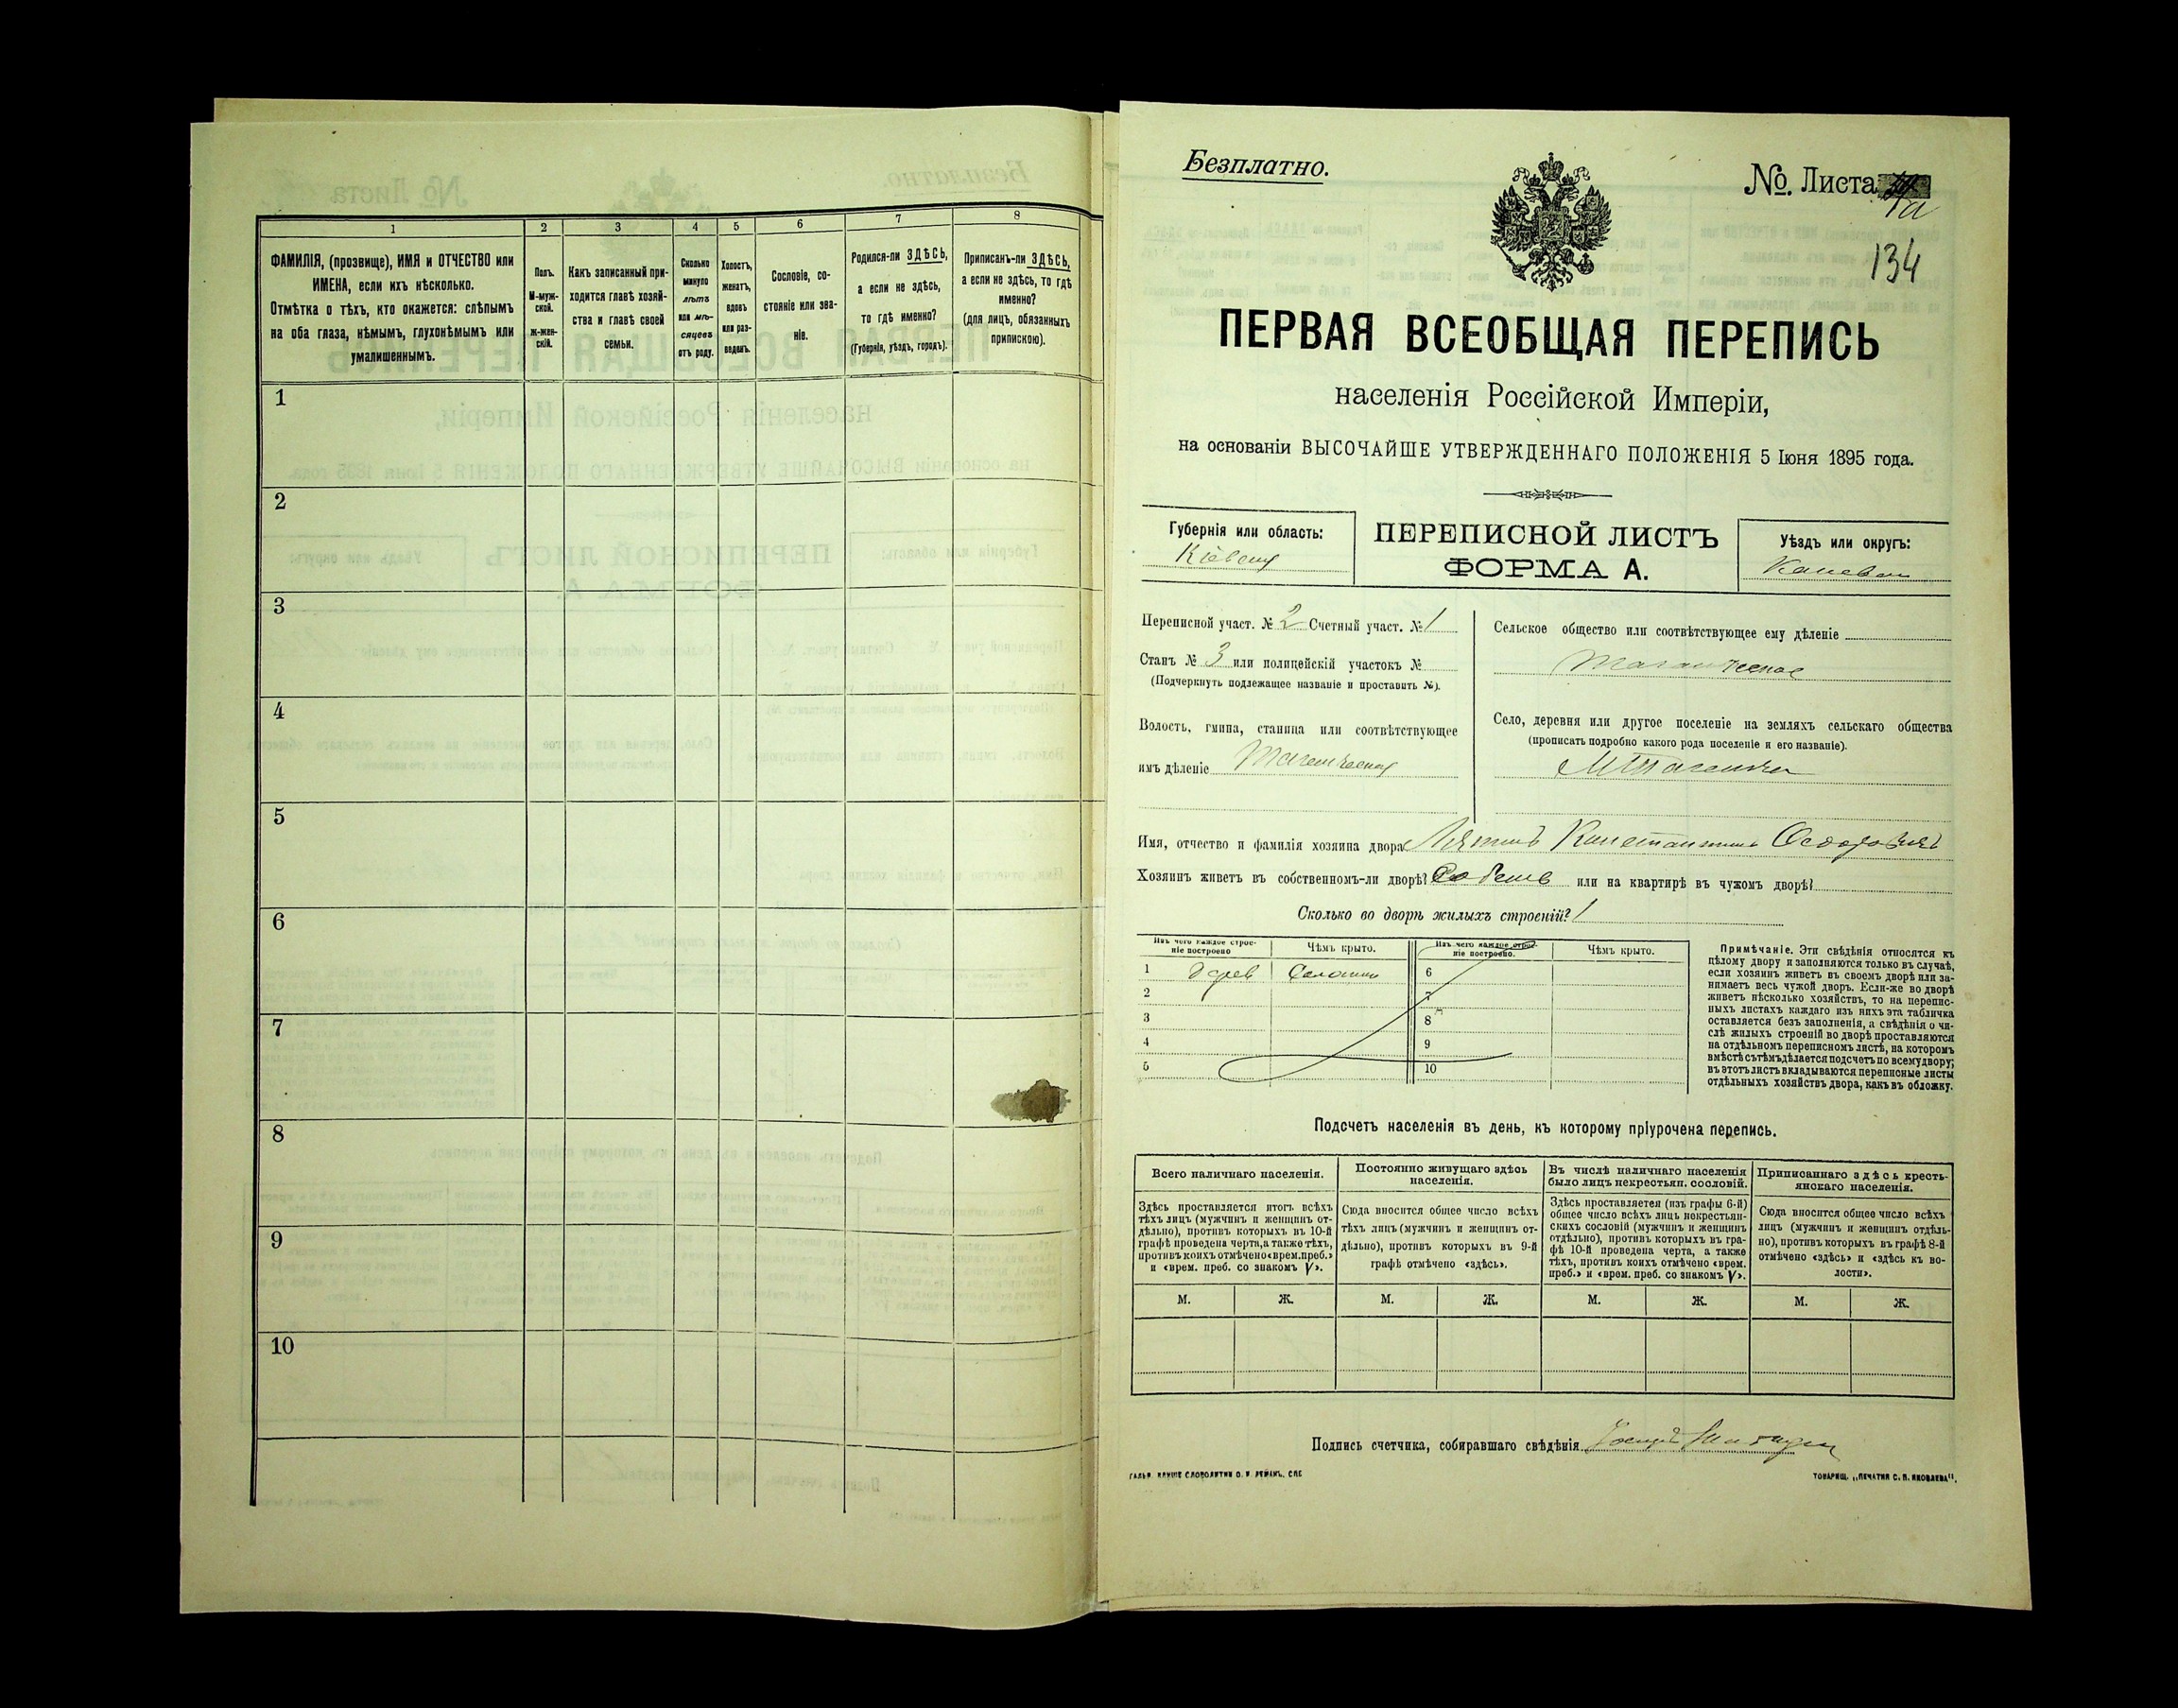 1
2
3
4
5
6
7
8
ФАМИЛІЯ, (прозвище), ИМЯ и ОТЧЕСТВО или
ИМЕНА, если ихъ нѣсколько.
Отмѣтка о тѣхъ, кто окажется: слѣпымъ
на оба глаза, нѣмымъ, глухонѣмымъ или
умалишеннымъ.
Полъ.
М-муж-
ской.
ж-жен-
скій.
Какъ записанный при-
ходится главѣ хозяй-
ства и главѣ своей
семьи.
Сколько
минуло
лѣтъ
или мѣ-
сяцевъ
отъ роду.
Холостъ,
женатъ,
вдовъ
или раз-
веденъ.
Сословіе, со-
стояніе или зва-
ніе.
Родился-ли ЗДѢСЬ,
а если не здѣсь,
то гдѣ именно?
(Губернія, уѣздъ, городъ).
Приписанъ-ли ЗДѢСЬ,
а если не здѣсь, то гдѣ
именно?
(для лицъ, обязанныхъ
припискою).
1
2
3
4
5
6
7
8
9
10
Безплатно.
№. Листа
134
ПЕРВАЯ ВСЕОБЩАЯ ПЕРЕПИСЬ
населенія Россійской Имперіи,
на основаніи ВЫСОЧАЙШЕ УТВЕРЖДЕННАГО ПОЛОЖЕНІЯ 5 Іюня 1895 года.
Губернія или область:
Кіевская
ПЕРЕПИСНОЙ ЛИСТЪ
ФОРМА А.
Уѣздъ или округъ:
Каневскій
Переписной участ. № 2 Счетный участ. № 1
Станъ № 3 или полицейскій участокъ №
(Подчеркнуть подлежащее названіе и проставить №).
Волость, гмина, станица или соотвѣтствующее
имъ дѣленіе Таганчская
Сельское общество или соотвѣтствующее ему дѣленіе
Таганческое
Село, деревня или другое поселеніе на земляхъ сельскаго общества
(прописать подробно какого рода поселеніе и его названіе).
М Таганча
Имя, отчество и фамилія хозяина двора Константинъ Ѳедоровичъ
Хозяинъ живетъ въ собственномъ-ли дворѣ? Собств или на квартирѣ въ чужомъ дворѣ?
Сколько во дворѣ жилыхъ строеній? 1
Изъ чего каждое строе-
ніе построено
Чѣмъ крыто.
Изъ чего каждое строе-
ніе построено.
Чѣмъ крыто.
1 дерев Соломою
2
3
4
5
6
7
8
9
10
Примѣчаніе. Эти свѣдѣнія относятся къ
цѣлому двору и заполняются только въ случаѣ,
если хозяинъ живетъ въ своемъ дворѣ или за-
нимаетъ весь чужой дворъ. Если-же во дворѣ
живетъ нѣсколько хозяйствъ, то на перепис-
ныхъ листахъ каждаго изъ нихъ эта табличка
оставляется безъ заполненія, а свѣдѣнія о чи-
слѣ жилыхъ строеній во дворѣ проставляются
на отдѣльномъ переписномъ листѣ, на которомъ
вмѣстѣ съ тѣмъ дѣлается подсчетъ по всему двору;
въ этотъ листъ вкладываются переписные листы
отдѣльныхъ хозяйствъ двора, какъ въ обложку.
Подсчетъ населенія въ день, къ которому пріурочена перепись.
Всего наличнаго населенія.
Здѣсь проставляется итогъ всѣхъ
тѣхъ лицъ (мужчинъ и женщинъ от-
дѣльно), противъ которыхъ въ 10-й
графѣ проведена черта, а также тѣхъ,
противъ коихъ отмѣчено «врем. преб.»
и «врем. преб. со знакомъ V».
Постоянно живущаго здѣсь
населенія.
Сюда вносится общее число всѣхъ
тѣхъ лицъ (мужчинъ и женщинъ от-
дѣльно), противъ которыхъ въ 9-й
графѣ отмѣчено «здѣсь».
Въ числѣ наличнаго населенія
было лицъ некрестьян. сословій.
Здѣсь проставляется (изъ графы 6-й)
общее число всѣхъ лицъ некрестьян-
скихъ сословій (мужчинъ и женщинъ
отдѣльно), противъ которыхъ въ гра-
фѣ 10-й проведена черта, а также
тѣхъ, противъ коихъ отмѣчено «врем.
преб.» и «врем. преб. со знакомъ V».
Приписаннаго здѣсь кресть-
янскаго населенія.
Сюда вносится общее число всѣхъ
лицъ (мужчинъ и женщинъ отдѣль-
но), противъ которыхъ въ графѣ 8-й
отмѣчено «здѣсь» и «здѣсь къ во-
лости».
М. Ж. М. Ж. М. Ж. М. Ж.
Подпись счетчика, собиравшаго свѣдѣнія
ГАЛЬВ. КЛИШЕ СЛОВОЛИТНИ О. И. ЛЕМАНЪ, СПБ
ТОВАРИЩ. „ПЕЧАТНЯ С. П. ЯКОВЛЕВА".